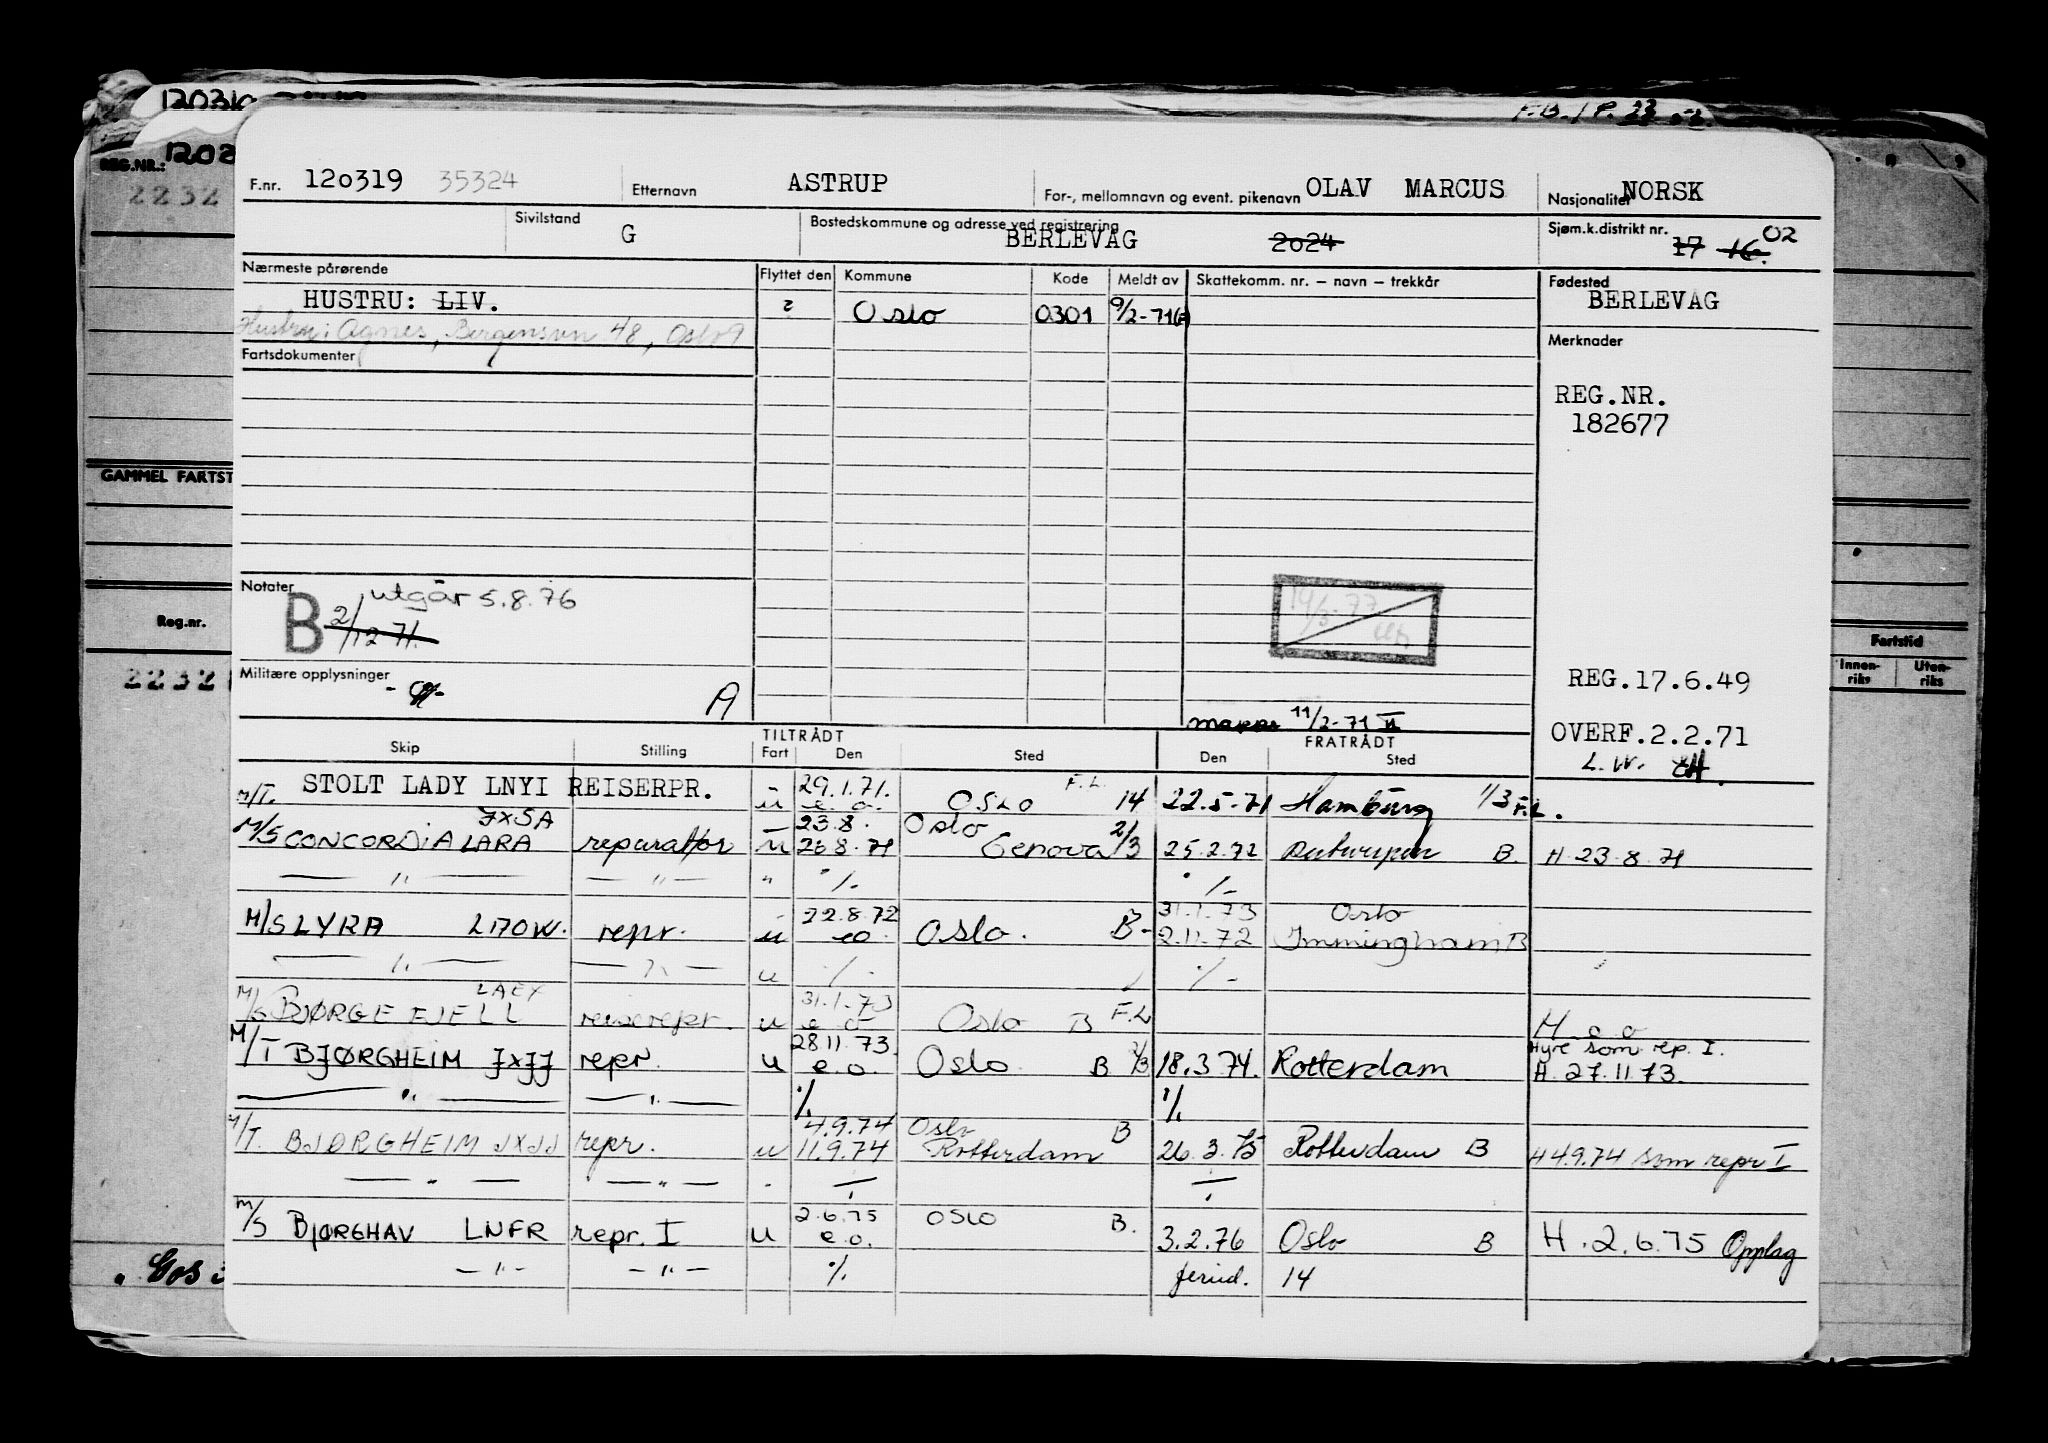 12031
F.B. / P. 23
REG.NR.: 1202
2232
GAMMEL FARTST
Reg.nr.
2232
Fartstid
Innen-riks Uten-riks
F.nr. 120319 35324 Etternavn ASTRUP For-, mellomnavn og event. pikenavn OLAV MARCUS Nasjonalitet NORSK
Sivilstand G Bostedskommune og adresse ved registrering BERLEVÅG 2024 Sjøm.k.distrikt nr. 17 16. 02
Nærmeste pårørende Flyttet den Kommune Kode Meldt av Skattekomm. nr. – navn – trekkår Fødested
HUSTRU: LIV. ? Oslo 0301 9/2-71 BERLEVÅG
Hustru: Agnes, Bergensvn 48, Oslo 9
Fartsdokumenter Merknader
REG.NR.
182677
Notater
B utgår 5.8.76
2/12 71.
14/3-77
Militære opplysninger
A
REG.17.6.49
mappe 11/2-71
OVERF.2.2.71
L.W.
TILTRÅDT FRATRÅDT
Skip Stilling Fart Den Sted Den Sted
M/T. STOLT LADY LNYI REISERPR. u 29.1.71. e.o. OSLO F.L. 14 22.5.71 Hamburg 1/3 F.L.
M/S CONCORDIA LARA JXSA reparatør u 23.8. 26.8.71 Oslo Genova 2/3 25.2.72 Antwerpen B. H. 23.8.71
— " — — " — " ·/. ·/-
M/S LYRA LAOW. repr. u 22.8.72 eo. Oslo. B- 31.1.73 2.11.72 Oslo Immingham B
— " — — " — u ·/. ·/-
M/S BJØRGEFJELL LAEY reiserepr. u 31.1.73 e o Oslo B F.L M e o
M/T BJØRGHEIM JXJJ repr. u 28.11.73. e.o. Oslo B 2/3 18.3.74. Rotterdam Hyre som rep. I. H. 27.11.73.
— " — — " — ·/. ·/.
M/T. BJØRGHEIM JXJJ repr. u 4.9.74 11.9.74 Oslo Rotterdam B 26.3.75 Rotterdam B H 4.9.74 som repr I
— " — — " —
M/S BJØRGHAV LNFR repr. I u 2.6.75 e.o. OSLO B. 3.2.76 Oslo B H. 2.6.75 Opplag
— " — — " — ·/. feried. 14